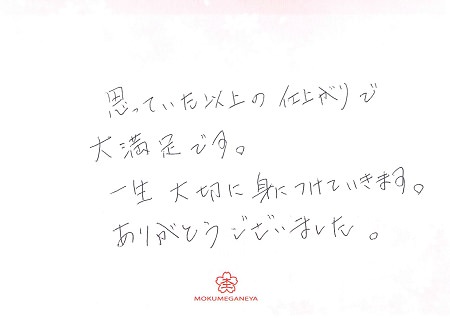 思っていた以上の仕上がりで
大満足です。
一生大切に身につけていきます。
ありがとうございました。
MOKUMEGANEYA